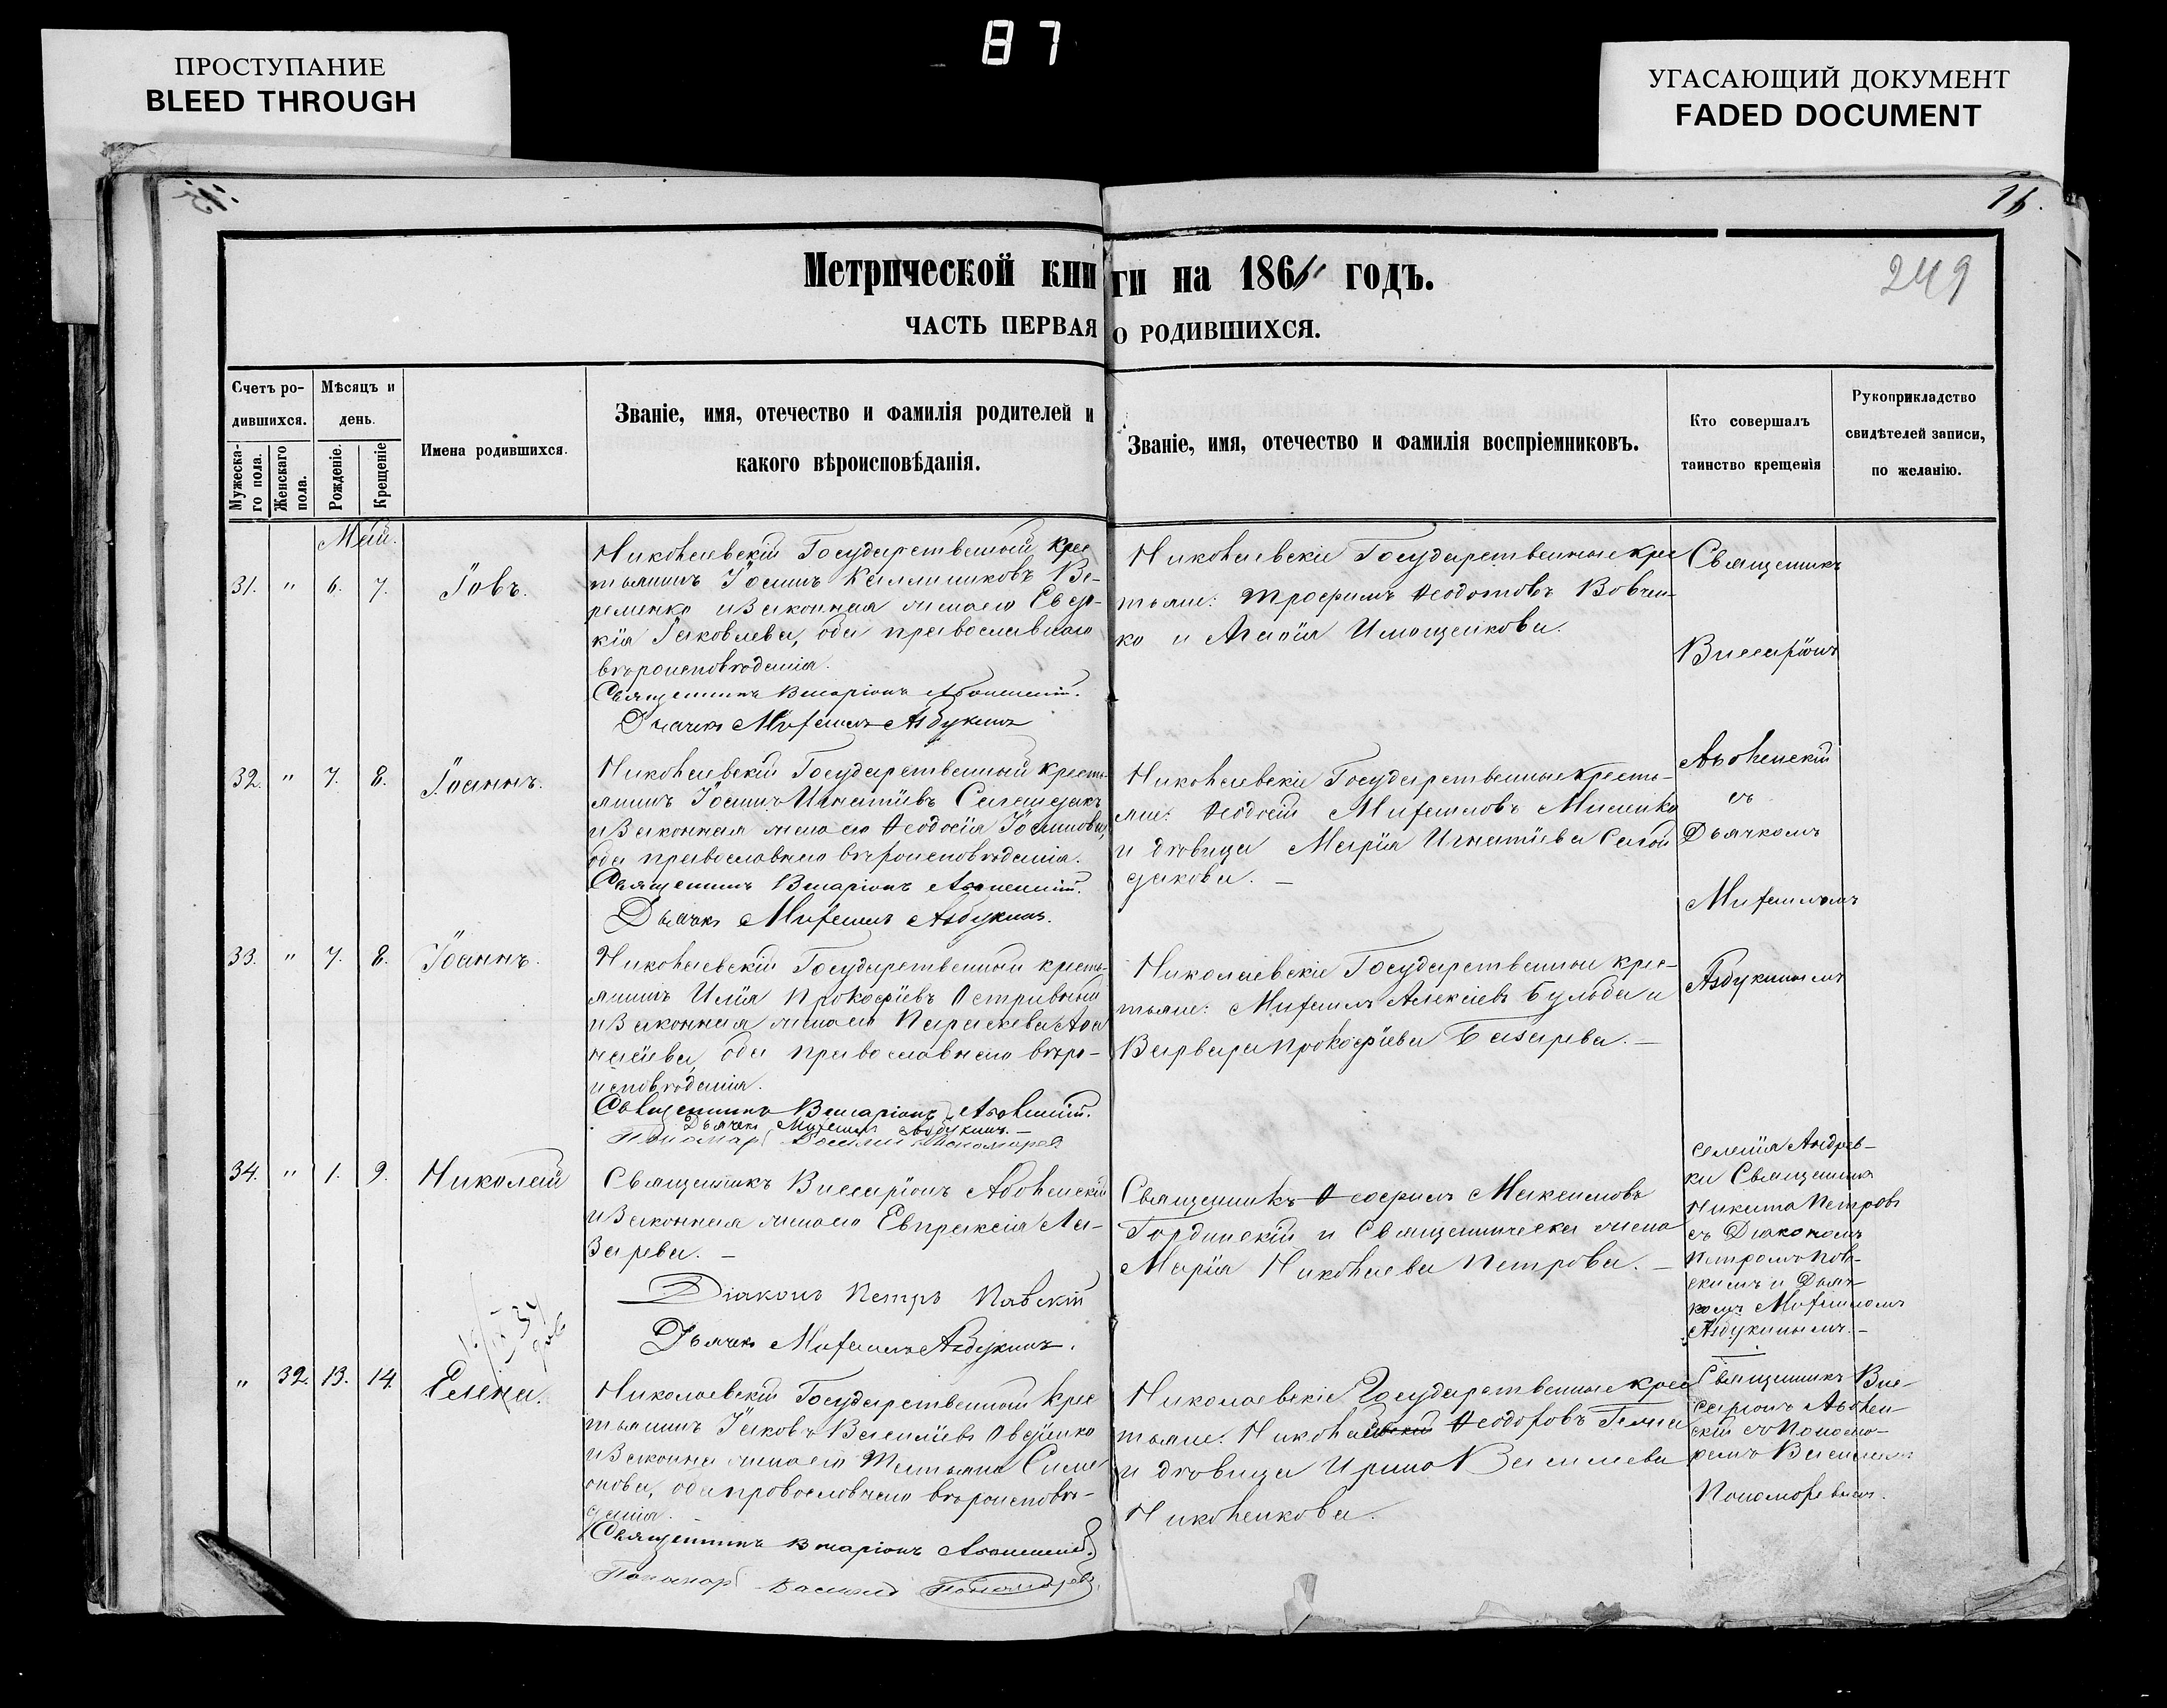 87
ПРОСТУПАНИЕ
BLEED THROUGH
УГАСАЮЩИЙ ДОКУМЕНТ
FADED DOCUMENT
249
Метрической книги на 186 годъ.
ЧАСТЬ ПЕРВАЯ О РОДИВШИХСЯ.
Счетъ родившихся.
Мужескаго пола.
Женскаго пола.
Мѣсяцъ и день.
Рожденіе.
Крещеніе
Имена родившихся.
Званіе, имя, отечество и фамилія родителей и
какого вѣроисповѣданія.
Званіе, имя, отечество и фамилія воспріемниковъ.
Кто совершалъ
таинство крещенія
Рукоприкладство
свидѣтелей записи,
по желанію.
Май.
31. " 6. 7. Іовъ.
Николаевскій Государственный крес
тьянинъ Іоаннъ Каллиниковъ Ве-
ременко и законная жена его Евдо-
кія Іаковлева, оба православнаго
вѣроисповѣданія.
Священникъ Висаріонъ
Дьячекъ Михаилъ Азбукинъ
Николаевскіе Государственные крес
тьяне: Трофимъ Ѳеодотовъ Вовчен-
ко и Агафія
Священникъ
Виссаріонъ
съ
Дьячкомъ
Михаиломъ
Азбукинымъ
32. " 7. 8. Іоаннъ.
Николаевскій Государственный кресть-
янинъ Іоаннъ Игнатіевъ
и законная жена его Ѳеодосія Іоаннова,
оба православнаго вѣроисповѣданія.
Священникъ Висаріонъ
Дьячекъ Михаилъ Азбукинъ.
Николаевскіе Государственные кресть-
яне: Ѳеодосій Михаиловъ
и дѣвица Марія Игнатіева
дакова. –
33. " 7. 8. Іоаннъ.
Николаевскій Государственный кресть-
янинъ Илія Прокофіевъ
и законная жена его Параскева Аѳа
насіева, оба православнаго вѣро-
исповѣданія.
Священникъ Висаріонъ
Дьячекъ Михаилъ Азбукинъ. –
Пономарь Василій Пономаревъ
Николаевскіе Государственные крес-
тьяне: Михаилъ Алексіевъ Бульба и
Варвара Прокофіева Базарева. –
34. " 1. 9. Николай
Священникъ Виссаріонъ
и законная жена его Евпраксія Ла-
зарева. –
Діаконъ Петръ Павскій
Дьячекъ Михаилъ Азбукинъ.
Священникъ Ѳеофилъ Максимовъ
Гординскій и Священническа жена
Марія Николаева Петрова. –
селенія Андреев-
ки Священникъ
Никита Петровъ
съ Діакономъ
Петромъ Пав-
скимъ и Дьяч-
комъ Михаиломъ
Азбукинымъ. –
" 32. 13. 14. Елена.
Николаевскій Государственный крес
тьянинъ Іаковъ Василіевъ Овдіенко
и законна жена его Татьяна Симе
онова, оба православнаго вѣроисповѣ-
данія.
Священникъ Висаріонъ
Пономарь Василій Пономаревъ.
Николаевскіе Государственные крес
тьяне: Ѳеодоровъ
и дѣвица Ирина Василиева
Николенкова.
Священникъ Вис-
саріонъ
скій съ Понома-
ремъ Василіемъ
Пономаревымъ.